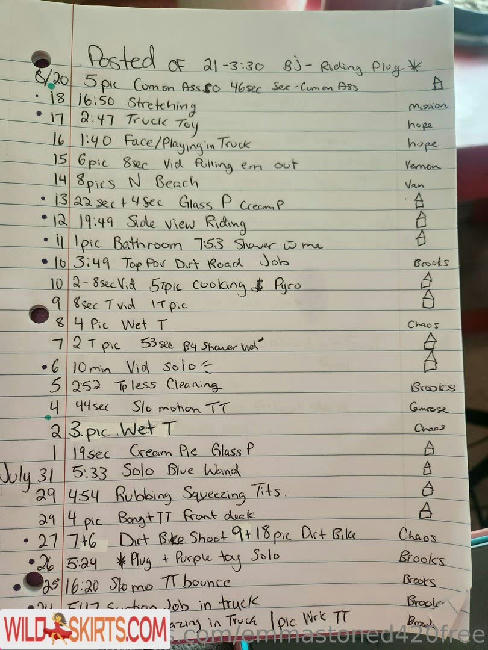 Posted OF 21-3:30 BJ - Riding Plug *
8/20 5 pic Cum on Ass 46sec Sec-Cum on Ass
18 16:50 Stretching mission
17 2:47 Truck Toy hope
16 1:40 Face/Playing in Truck hope
15 6pic 8sec Vid Pulling em out Vernon
14 8pics N Beach Van
13 22 sec + 4sec Glass P Cream P
12 19:49 Side View Riding
11 1pic Bathroom 7:53 Shower w me
10 3:49 Top Pov Dirt Road Job Brooks
10 2-8sec Vid 57pic Cooking Pyro
9 8sec T vid 1T pic
8 4 Pic Wet T Chaos
7 2 T pic 53sec BJ Shower Wet
6 10min Vid Solo
5 252 Topless Cleaning Brooks
4 44sec Slo motion TT
2 3.pic Wet T Chaos
1 19sec Cream Pie Glass P
July 31 5:33 Solo Blue Wand
29 4:54 Rubbing Squeezing Tits.
29 4 pic Bong + TT Front deck
27 7+6 Dirt Bike Shoot 9+18 pic Dirt Bike Chaos
26 5:24 * Plug + Purple toy Solo Brooks
25 16:20 Slo mo TT bounce Brooks
24 5:47 Suction Job in truck Brooks
in Truck 1pic Wrk TT
WILDSKIRTS.COM
.com/emmastoned420free